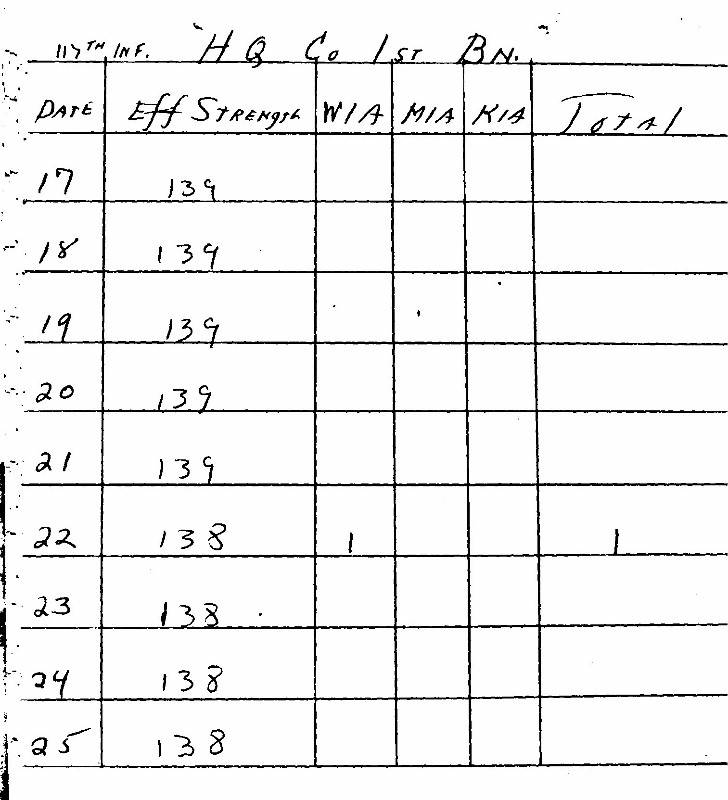 117TH INF. "HQ Co 1ST BN."
DATE Eff STRENgth W/A M/A K/A TOTAL
17 139
18 139
19 139
20 139
21 139
22 138 1 1
23 138
24 138
25 138